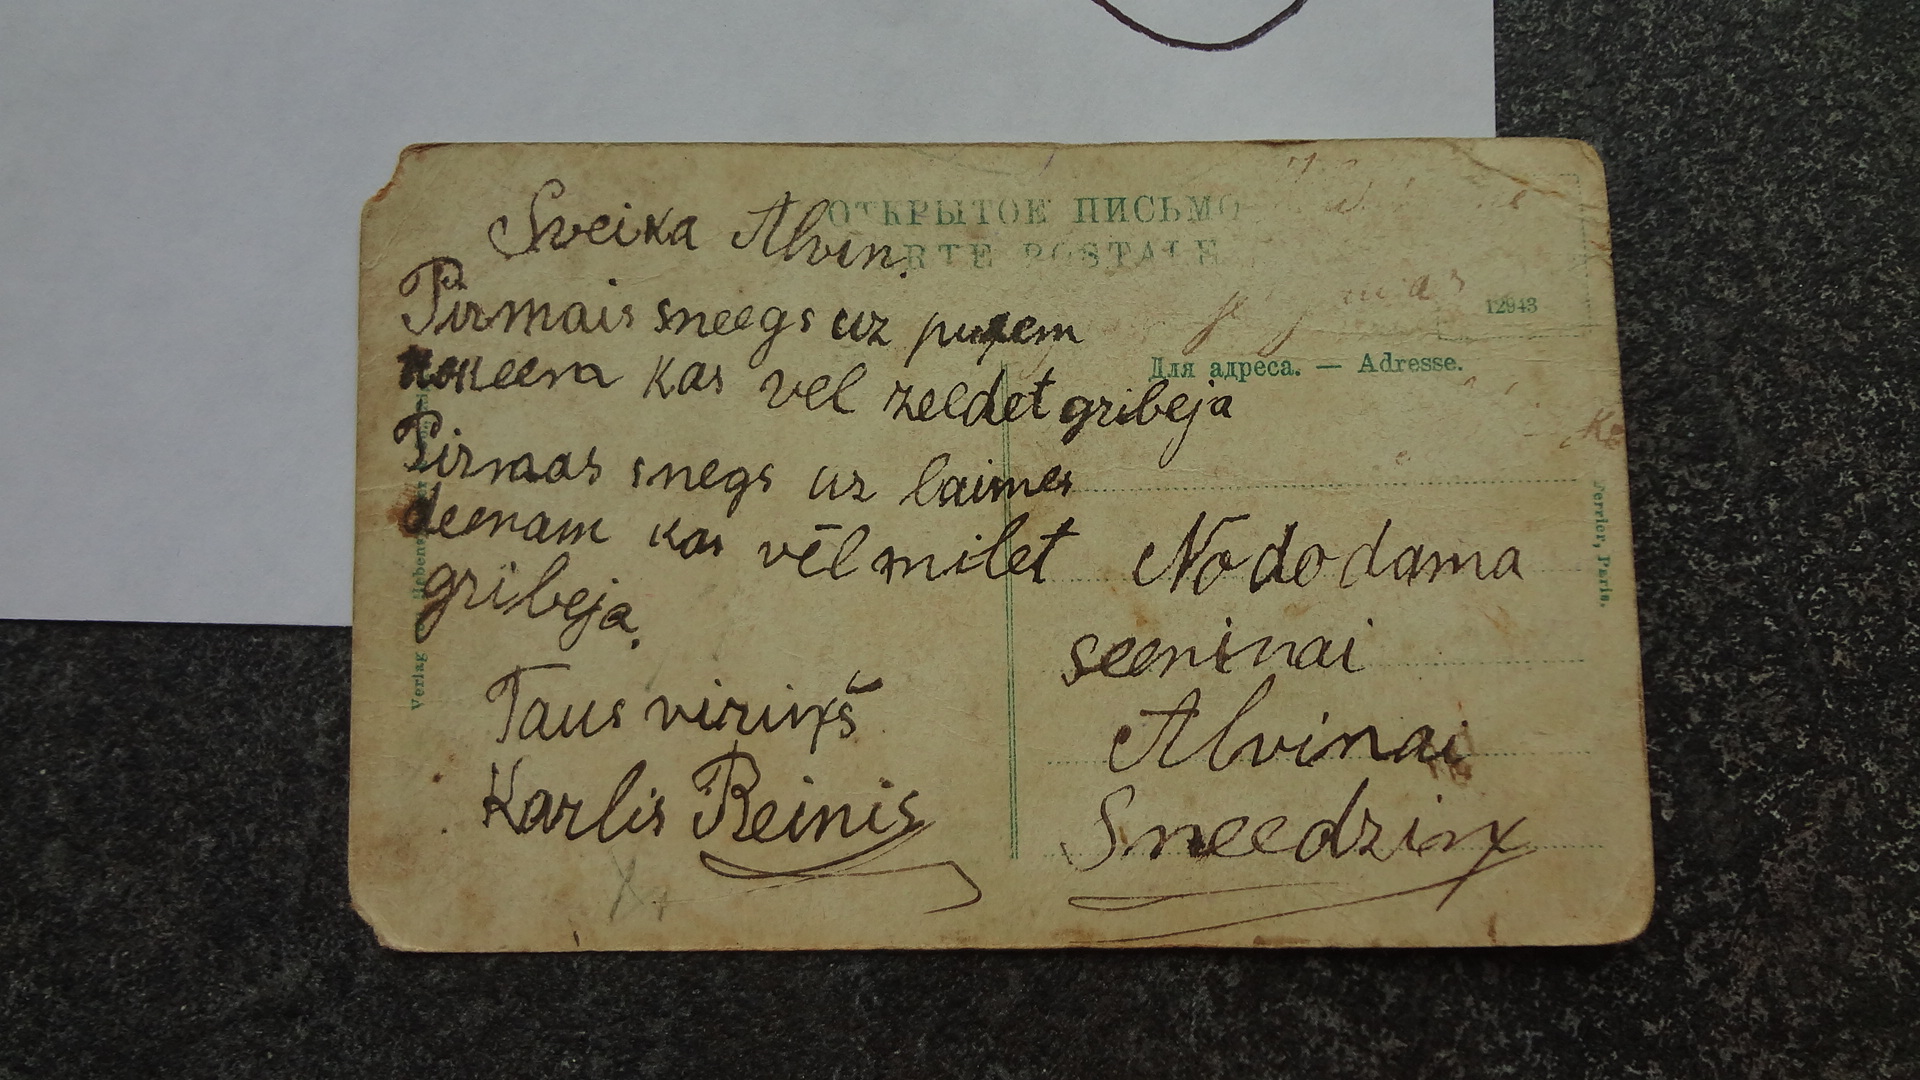 ОТКРЫТОЕ ПИСЬМО
CARTE POSTALE
12943
Для адреса. — Adresse.
Sveika Alvin.
Pirmais sneegs uz puķem
kokeem kas vel zeedet gribeja
Pirmas snegs uz laimes
deenam kas vēl milet
gribeja.
Taus viriņš
Karlis Reinis
Nododama
seeninai
Alvinai
Sneedziņ
Verlag
Ferrier, Paris.